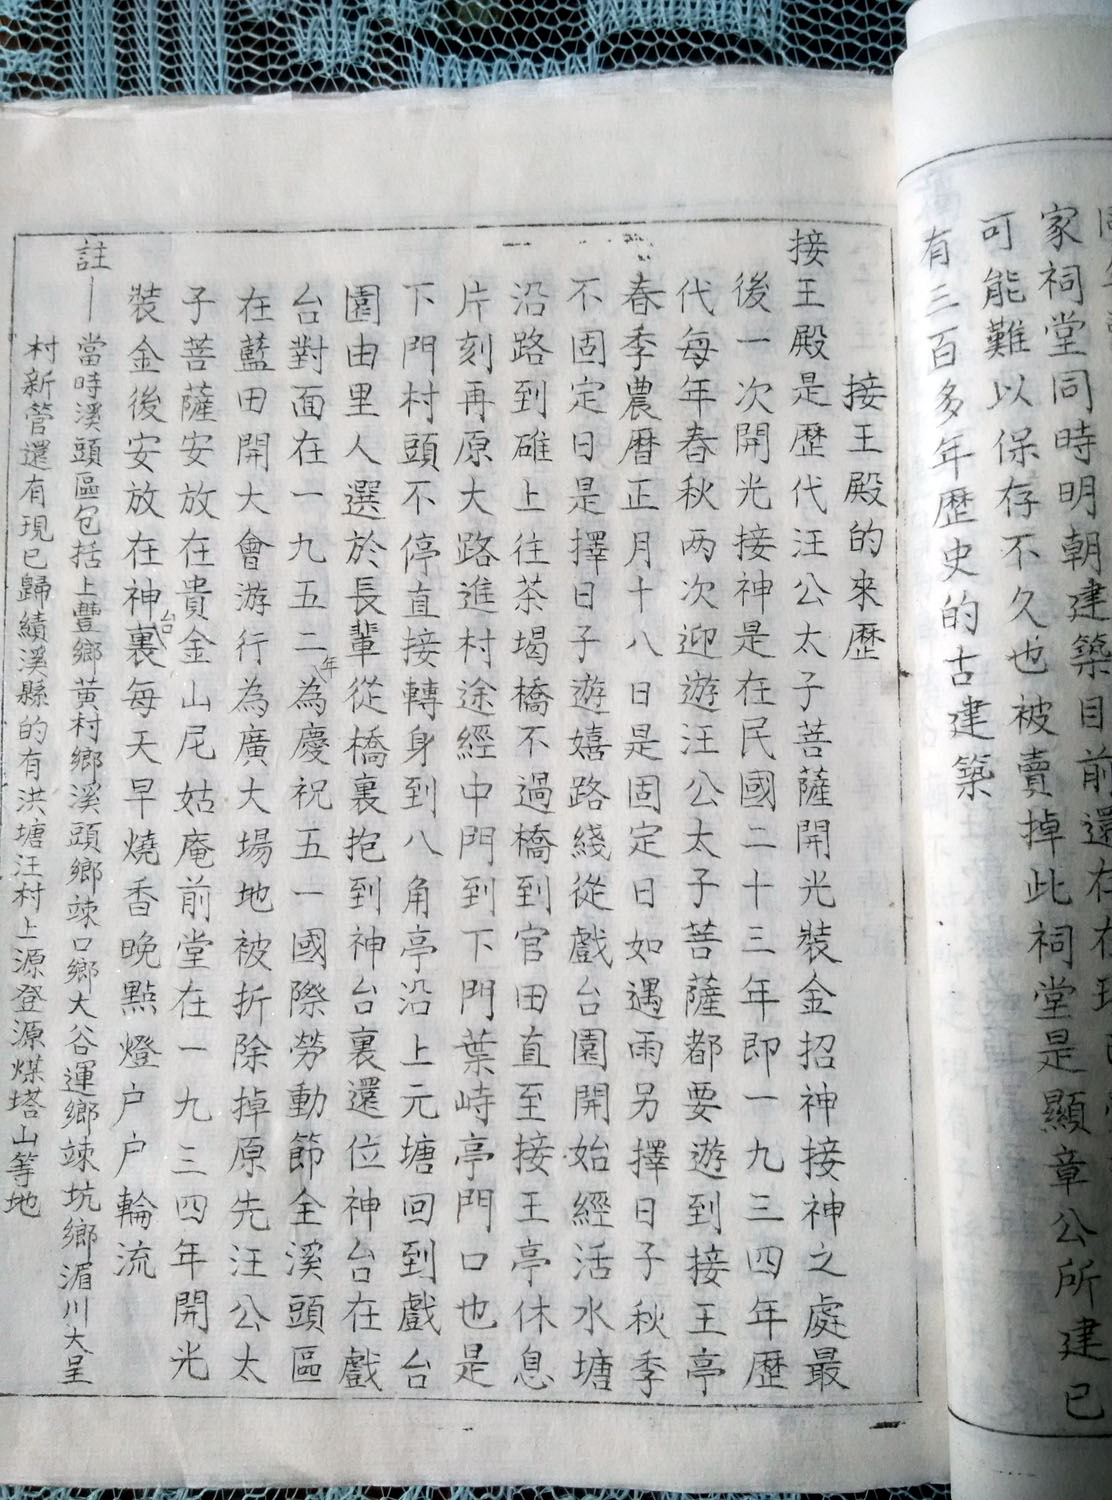 家祠堂同時明朝建築目前還存在
可能難以保存不久也被賣掉此祠堂是顯章公所建已
有三百多年歷史的古建築
接王殿的來歷
接王殿是歷代汪公太子菩薩開光裝金招神接神之處最
後一次開光接神是在民國二十三年即一九三四年歷
代每年春秋兩次迎遊汪公太子菩薩都要遊到接王亭
春季農曆正月十八日是固定日如遇雨另擇日子秋季
不固定日是擇日子遊嬉路綫從戲台園開始經活水塘
沿路到碓上往茶堨橋不過橋到官田直至接王亭休息
片刻再原大路進村途經中門到下門葉峙亭門口也是
下門村頭不停直接轉身到八角亭沿上元塘回到戲台
園由里人選於長輩從橋裏抱到神台裏還位神台在戲
台對面在一九五二年為慶祝五一國際勞動節全溪頭區
在藍田開大會游行為廣大場地被折除掉原先汪公太
子菩薩安放在貴金山尼姑庵前堂在一九三四年開光
裝金後安放在神台裏每天早燒香晚點燈户户輪流
註—當時溪頭區包括上豐鄉黃村鄉溪頭鄉竦口鄉大谷運鄉竦坑鄉湄川大呈
村新管還有現已歸績溪縣的有洪塘汪村上源登源煤塔山等地